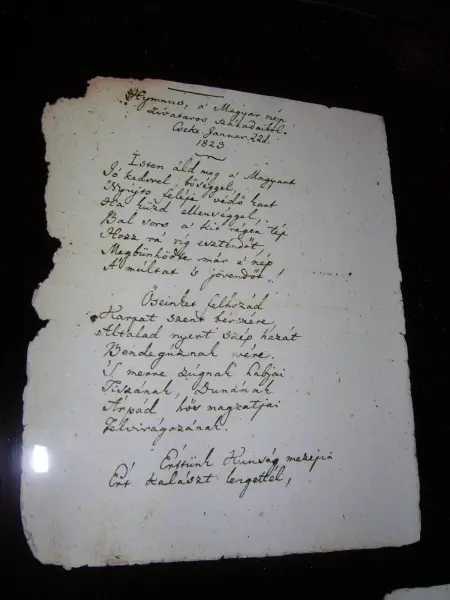 Hymnus, a' Magyar nép
zivataros századaiból.
Cseke, Januar. 22d.
1823
Isten áld meg a Magyart
Jó kedvvel, bőséggel,
Nyújts feléje védő kart
Ha küzd ellenséggel;
Bal sors a' kit régen tép
Hozz rá víg esztendőt,
Megbünhödte már e' nép
A múltat 's jövendőt!
Őseinket felhozád
Kárpát szent bérczére,
Általad nyert szép hazát
Bendegúznak vére.
'S merre zúgnak habjai
Tiszának, Dunának
Árpád hős magzatjai
Felvirágozának.
Értünk Kunság mezején
Ért kalászt lengettél,